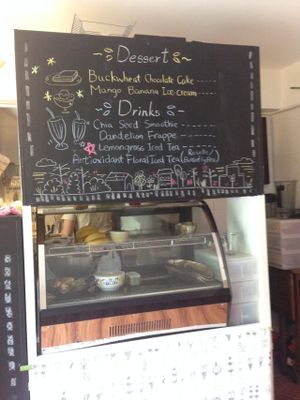 Dessert
Buckwheat Chocolate Cake
Mango Banana Ice cream
Drinks
Chia Seed Smoothie
Dandelion Frappe
Lemongrass Iced Tea
Antioxidant Floral Iced Tea (Roselle / Butterfly Pea)